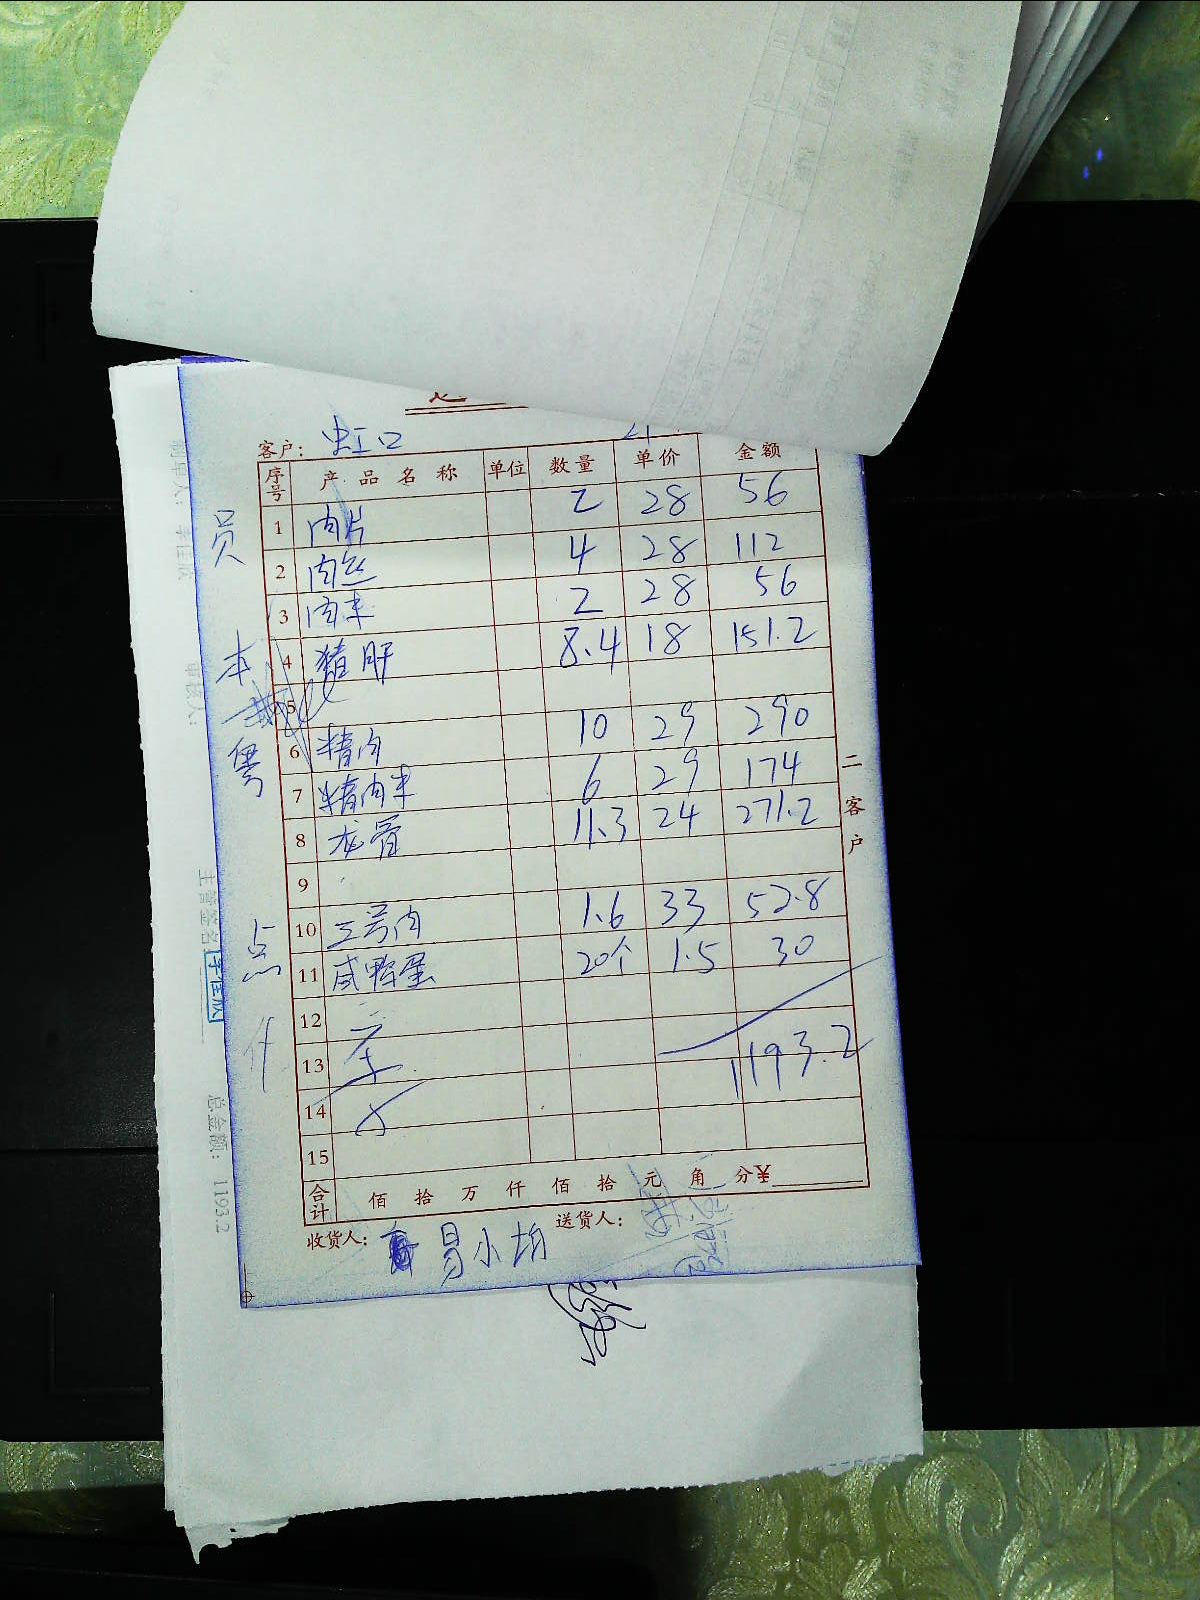 客户: 虹口
序号 产品名称 单位 数量 单价 金额
1 肉片 2 28 56
2 肉丝 4 28 112
3 肉末 2 28 56
4 猪肝 8.4 18 151.2
5
6 精肉 10 29 290
7 精肉末 6 29 174
8 龙骨 11.3 24 271.2
9
10 三号肉 1.6 33 52.8
11 咸鸭蛋 20个 1.5 30
12
13 1193.2
14
15
合计 佰 拾 万 仟 佰 拾 元 角 分¥
收货人: 易小均 送货人:
二客户
员
本
粤
点
主管签名
总金额: 1193.2